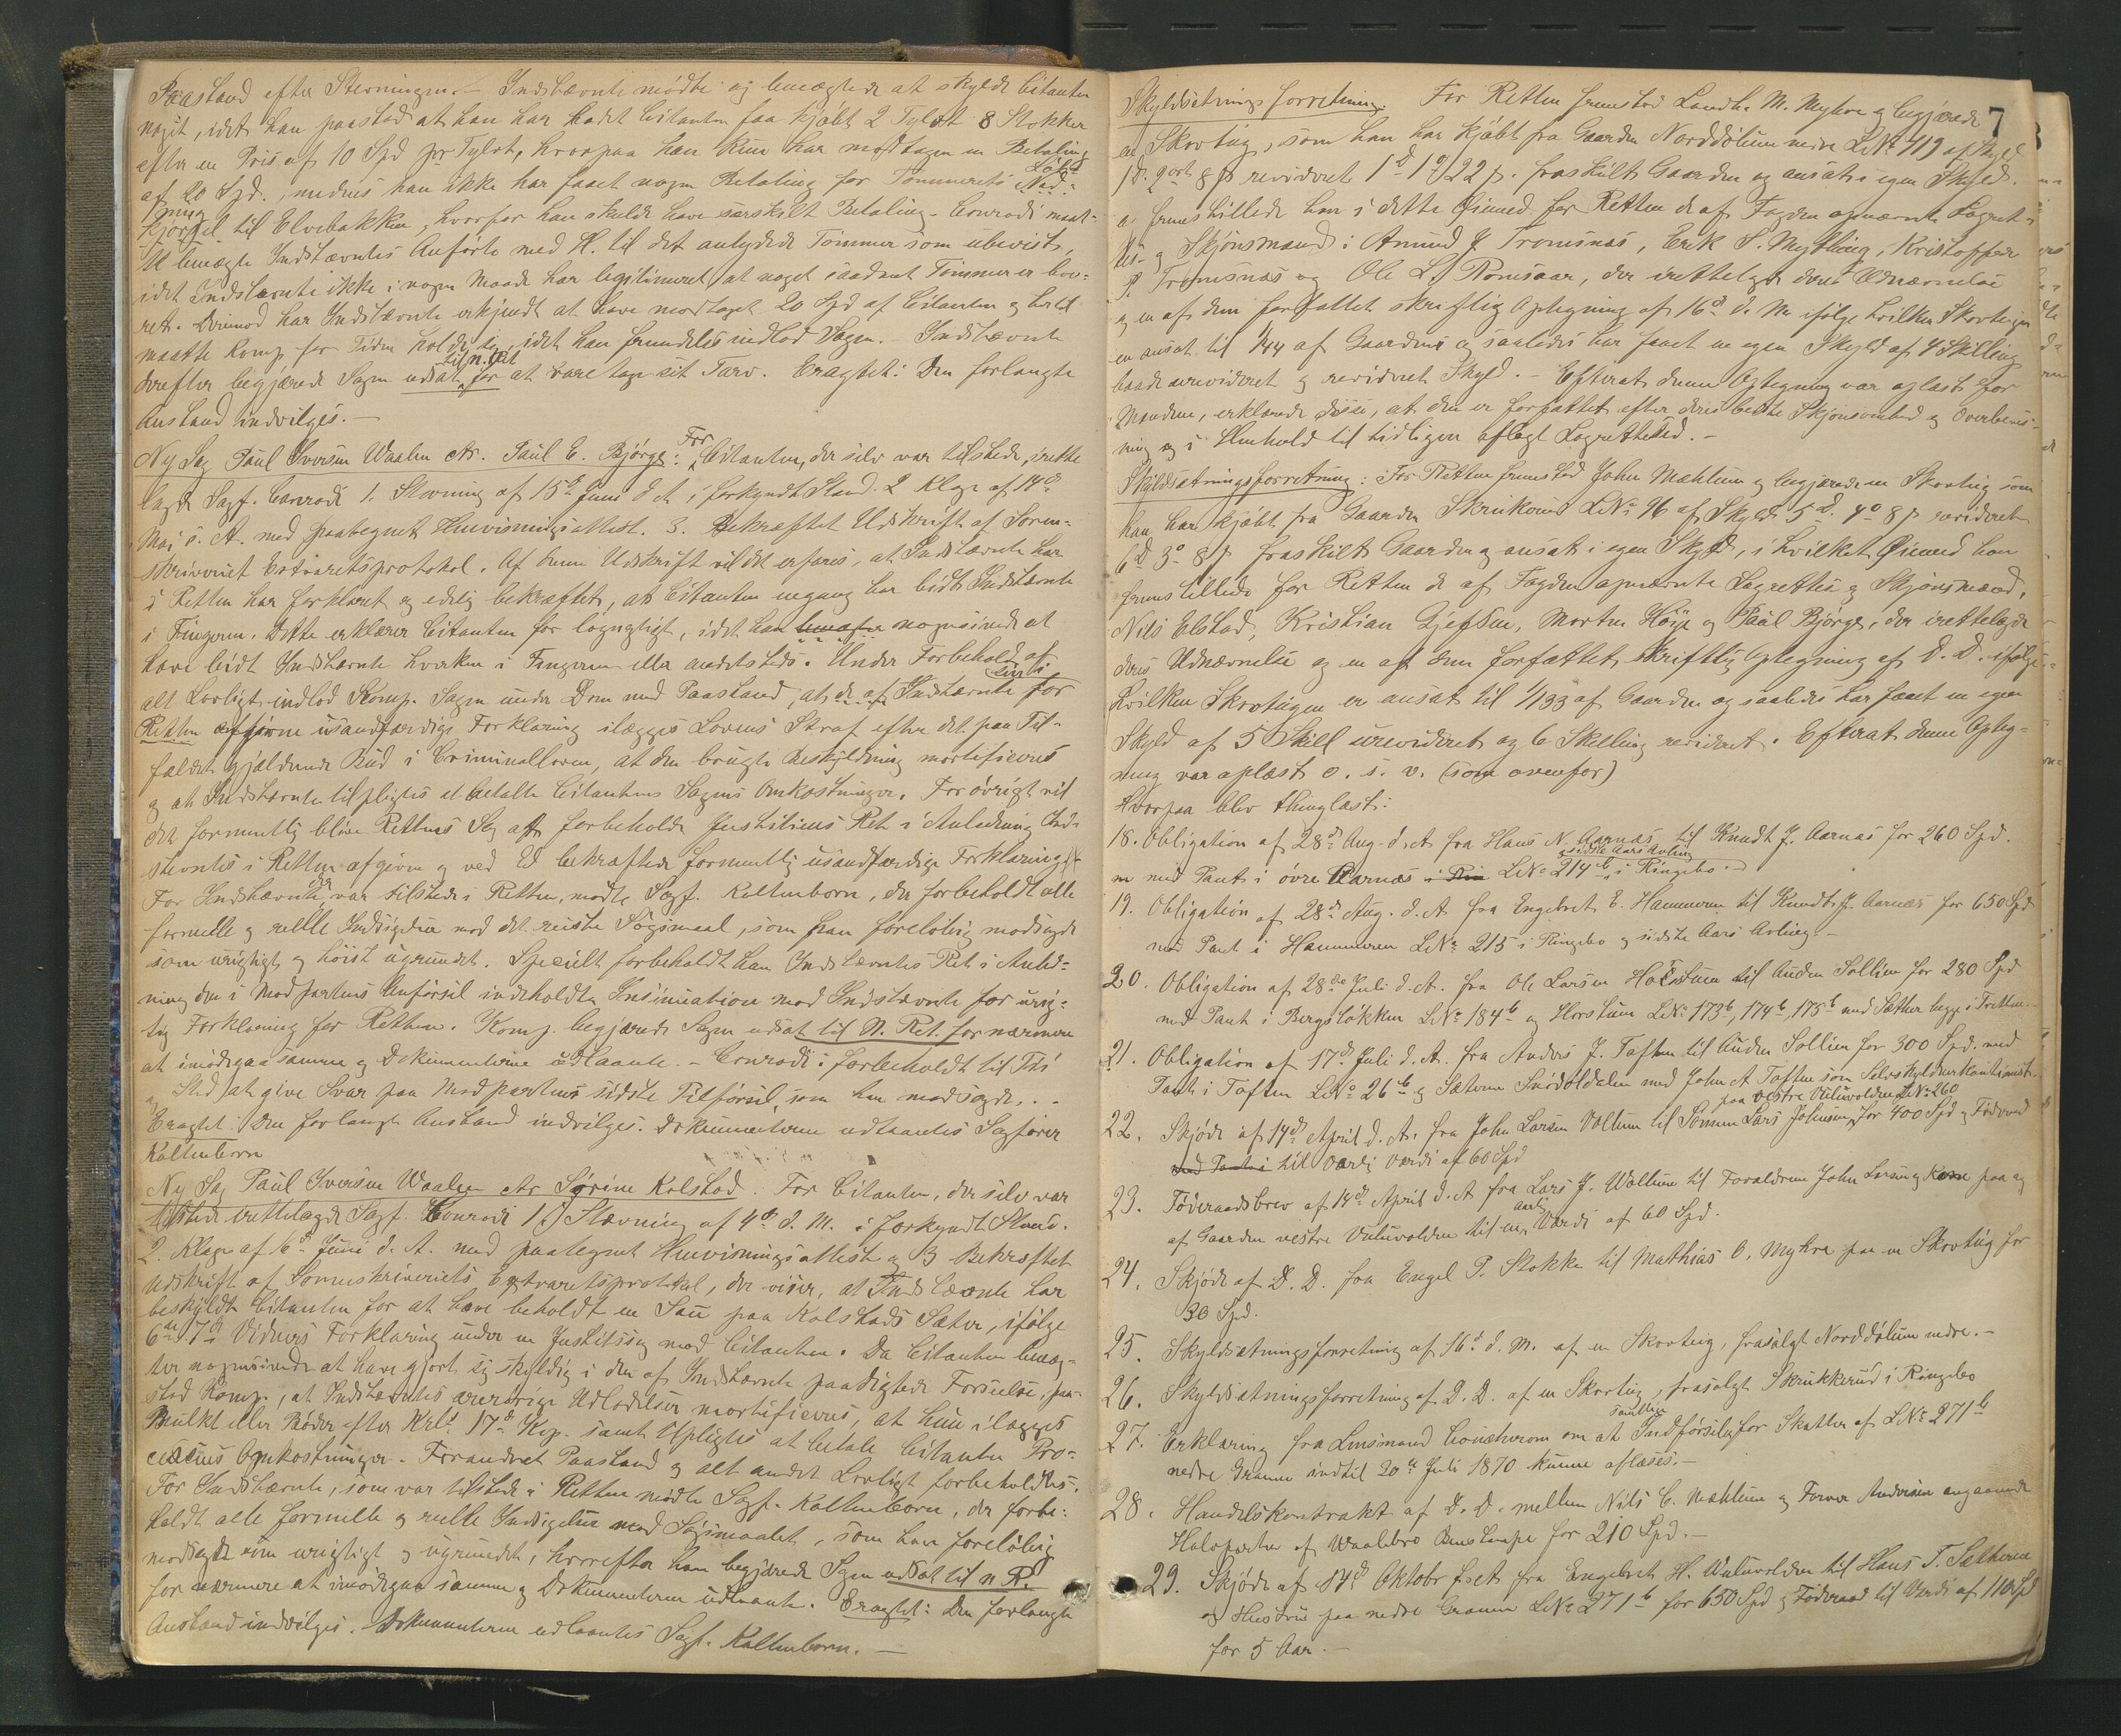 Paastand efter Stevningen. – Indstævnte mødte og benægtede at skylde Citanten
noget, idet han paastod at han har kadet Citanten faa kjøbt 2 Tylvt 8 Stokker
efter en Pris af 10 Spd pr Tylvt, hvorpaa han kun har modtagen en Betaling
af 20 Spd., medens han ikke har faaet nogen Betaling for Tømmerets
Kjørsel til Elvebakken, hvorfor han skulde have særskilt Betaling. Conradi maat-
te benægte Indstævntes Anførte med H. til det antydede Tømmer som ubevist,
idet Indstævnte ikke i nogen Maade har legitimeret at noget saadant Tømmer er leve-
ret. Derimod har Indstævnte erkjendt at have modtaget 20 Spd af Citanten og hertil
maatte Komp. for Tiden holde sig, idet han fremdeles indlod Sagen. Indstævnte
derefter begjærede Sagen udsat til n. Ret for at varetage sit Tarv. Eragtet: Den forlangte
Anstand indvilges. –
Ny Sag Paul Iversen Waalen ctr. Paul E. Bjørge: For Citanten, der selv var tilstede, irette
lagde Sagf. Conradi 1. Stevning af 15de Juni d A i forkyndt Stand. 2 Klage af 14de
Mai s. A. med paategnet Henvisningsattest. 3. Bekræftet Udskrift af Soren-
skriveriet Extraretsprotokol. Af denne Udskrift vil det erfares, at Indstævnte har
i Retten har forklaret og edelig bekræftet, at Citanten engang har bidt Indstævnte
i Fingeren. Dette erklærer Citanten for løgnagtigt, idet han benægter nogensinde at
have bidt Indstævnte hverken i Fingeren eller andetsteds. Under Forbehold af
alt Lovligt indlod Komp. Sagen under Dom med Paastand, at de af Indstævnte for
Retten afgivne usandfærdige Forklaring ilægges Lovens Straf efter det paa Til-
fældet gjældende Bud i Criminalloven, at den brugte Beskyldning mortificeres
og at Indstævnte tilpligtes at betale Citantens Sagens Omkostninger. Forøvrigt vil
det formentlig blive Rettens Sag at forbeholde Justitiens Ret i Anledning Ind-
stevntes i Retten afgivne og ved Ed bekræftede formentlig usandfærdige Forklaring.
For Indstævnte, der var tilstede i Retten, mødte Sagf. Kaltenborn, der forbeholdt alle
formelle og reelle Indsigelser mod det reiste Søgsmaal, som han foreløbig modsagde
som urigtigt og høist ugrundet. Specielt forbeholdt han Indstævntes Ret i Anled-
ning den i Modpartens Anførsel indeholdte Insinuation mod Indstævnte for urig-
tig Forklaring for Retten. Komp. begjærede Sagen udsat til N. Ret. for nærmere
at imødegaa samme og Dokumenterne udlaante. – Conradi: forbeholdt til Tid
og Sted at give Svar paa Modpartens sidste Tilførsel, som han modsagde. . .
Eragtet: Den forlangte Anstand indvilges. Dokumenterne udlaantes Sagfører
Kaltenborn
Ny Sag Paul Iversen Waalen ctr Sørine Kolstad. For Citanten, der selv var
tilstede irettelagde Sagf. Conradi 1) Stævning af 4de d. M. i forkyndt Stand.
2. Klage af 6te Juni d. A. med paategnet Henvisningsattest og 3 Bekræftet
Udskrift af Sorenskriveriets Extraretsprotokol, der viser, at Indstævnte har
beskyldt Citanten for at have beholdt en Sau paa Kolstads Sæter, ifølge
6te og 7de Vidners Forklaring under en Justitssag mod Citanten. Da Citanten benæg-
ter nogensinde at have gjort sig skyldig i den af Indstævnte paadigtede Forseelse, paa-
stod Komp., at Indstævntes ærerørige Udladelser mortificeres, at hun ilægges
Mulkt eller Bøder efter Krl. 17de Kap. samt tilpligtes at betale Citanten Pro-
cessens Omkostninger. Forandret Paastand og alt andet Lovligt forbeholdtes.
For Indstævnte, som var tilstede i Retten mødte Sagf. Kaltenborn, der forbe-
holdt alle formelle og reelle Indsigelser mod Søgsmaalet, som han foreløbig
modsagde som urigtigt og ugrundet, hvorefter han begjærede Sagen udsat til n R.
for nærmere at imødegaa samme og Dokumenterne udlaante. Eragtet: Den forlangte
Anstand indvilges. Dokumenterne udlaantes Sagf. Kaltenborn. –
7
Skyldsætningsforretning. For Retten fremstod Landh. M. Myhre og begjærede
en Skovteig, som han har kjøbt fra Gaarden Norddølum nedre LNo 119 af Skyld
1 D. 2 ort 8 s revideret 1 D 1 O 22 s. fraskilt Gaarden og ansat i egen Skyld.
fremstillede han i dette Øiemed for Retten de af Fogden opnævnte Lagret-
tes- og Skjønsmænd: Amund J. Tromsnæs, Erik S. Mytting, Kristoffer
P. Tromsnæs og Ole L. Romsaas, der irettelagde deres Udnævnelse
og en af dem forfattet skriftlig Optegning af 16de d. M. ifølge hvilken Skovteigen
en ansat til 1/44 af Gaarden og saaledes har faaet en egen Skyld af 4 Skilling
baade urevideret og revideret Skyld. – Efterat denne Optegning var oplæst for
Mændene, erklærede disse, at den er forfattet efter deres bedste Skjønsomhed og Overbevis-
ning og i Henhold til tidligere aflagt Lagretteed. –
Skyldsætningsforretning: For Retten fremstod John Mæhlum og begjærede en Skovteig som
han har kjøbt fra Gaarden Skrukkerud LNo 96 af Skyld 5 D. 4 O 8 s revideret
6 D 3 O 8 s fraskilt Gaarden og ansat i egen Skyld, i hvilket Øiemed han
fremstillede for Retten de af Fogden opnævnte Lagrettes og Skjønsmænd,
Nils Elstad, Kristian Gjefsen, Morten Høije og Paal Bjørge, der irettelagde
deres Udnævnelse og en af dem forfattet skriftlig Optegning af D. D. ifølge
hvilken Skovteigen er ansat til 1/133 af Gaarden og saaledes har faaet en egen
Skyld af 5 Skill urevideret og 6 Skilling revideret. Efterat denne Opteg-
ning var oplæst o. s. v. (som ovenfor)
Hvorpaa blev thinglæst:
18. Obligation af 28de Aug. d. A fra Hans N. Aarnæs til Knudt J. Aarnæs for 260 Spd.
med Pant i øvre Aarnæs LNo 214b, sidste Aars Avling i Ringebo. –
19. Obligation af 28de Aug. d. A fra Engebret E. Hammeren til Knudt J. Aarnæs for 650 Spd
med Pant i Hammeren LNo 215 i Ringebo og sidste Aars Avling. –
20. Obligation af 28de Juli d. A. fra Ole Larsen Horstuen til Auden Sollien for 280 Spd
med Pant i Bergsløkken LNo 184b og Horstuen LNo 173b, 174b, 175b med Sæther begge i Fretten.
21. Obligation af 17de Juli d. A. fra Anders J. Toften til Auden Sollien for 300 Spd. med
Pant i Toften LNo 26b og Sæteren Snødøldalen med John A Toften som Selvskyldnerkautionist.
22. Skjøde af 14de April d. A. fra John Larsen Vollum til Sønnen Lars Johnsen paa vestre Vuluvolden LNo 260 for 400 Spd og Føderaad
med Pant i til aarlig Værdi af 60 Spd
23. Føderaadsbrev af 14de April d. A fra Lars J. Wollum til Forældrene John Larsen og Kone paa og
af Gaarden vestre Vuluvolden til en aarlig Værdi af 60 Spd.
24. Skjøde af D. D. fra Engel P. Stokke til Matthias O. Myhre paa en Skovteig for
30 Spd.
25. Skyldsætningsforretning af 16de d. M. af en Skovteig, frasolgt Norddølum nedre. –
26. Skyldsætningsforretning af D. D. af en Skovteig, frasolgt Skrukkerud i Ringebo
27. Erklæring fra Lensmand om at samtlige Indførsler for Skatter af LNo 271b
nedre Gramen indtil 20de Juli 1870 kunne aflæses. –
28. Handelskontrakt af D. D. mellem Nils C. Mæhlum og Torer Andersen angaaende
Halvparten af Waalebro for 210 Spd. –
29. Skjøde af 14de Oktobr f. A fra Engebret H. Wuluvolden til Hans T. Sætheren
og Hustru paa nedre Gramen LNo 271b for 650 Spd og Føderaad til Værdi af 110 Spd
for 5 Aar. –